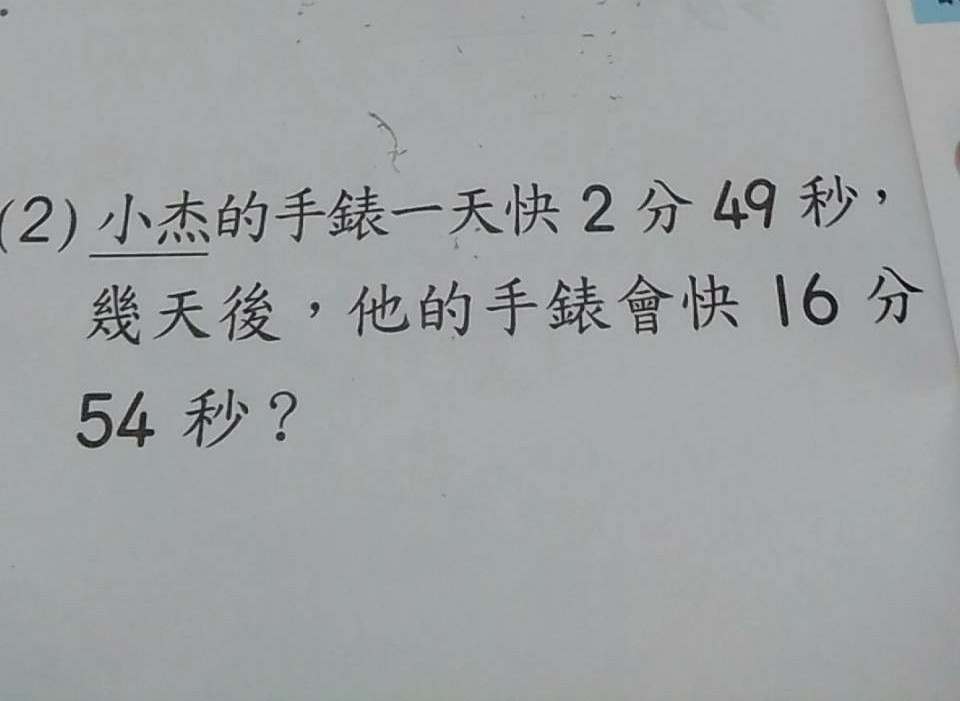 (2) 小杰的手錶一天快 2 分 49 秒，
幾天後，他的手錶會快 16 分
54 秒？